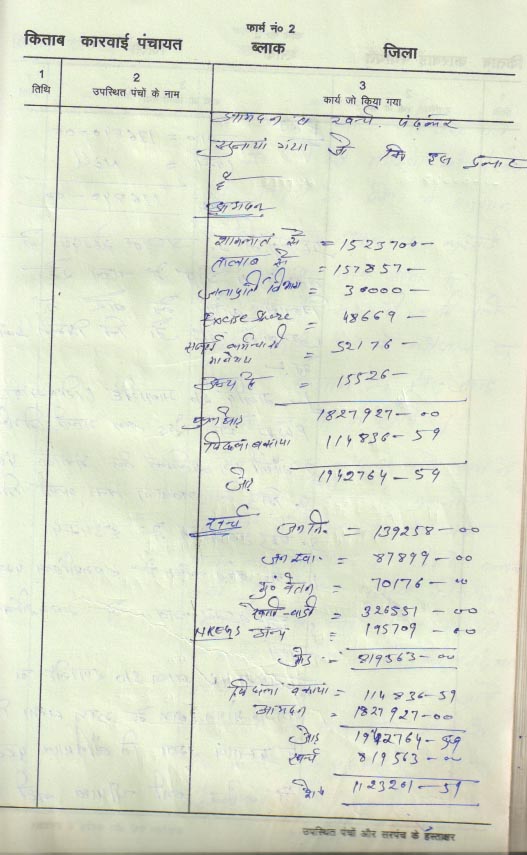 फार्म नं० 2
किताब कारवाई पंचायत ब्लाक जिला
1 2 3
तिथि उपस्थित पंचों के नाम कार्य जो किया गया
आमदन व खर्च
सुनाया गया जो कि इस
है
आमदन
शामलात से = 1523700-
तालाब से = 157857-
विभाग = 30000-
Excise Share = 48669-
सफाई कर्मचारी = 52176-
मानदेय
= 15526-
1827927-00
पिछला बकाया 114836-59
जोड़ 1942764-59
खर्च = 139258-00
= 87899-00
= 70176-00
= 326551-00
NREGS अन्य = 195709-00
जोड़ = 819563-00
पिछला बकाया = 114836-59
आमदन = 1827927-00
जोड़ 1942764-59
खर्च = 819563-00
शेष = 1123201-59
उपस्थित पंचों और सरपंच के हस्ताक्षर